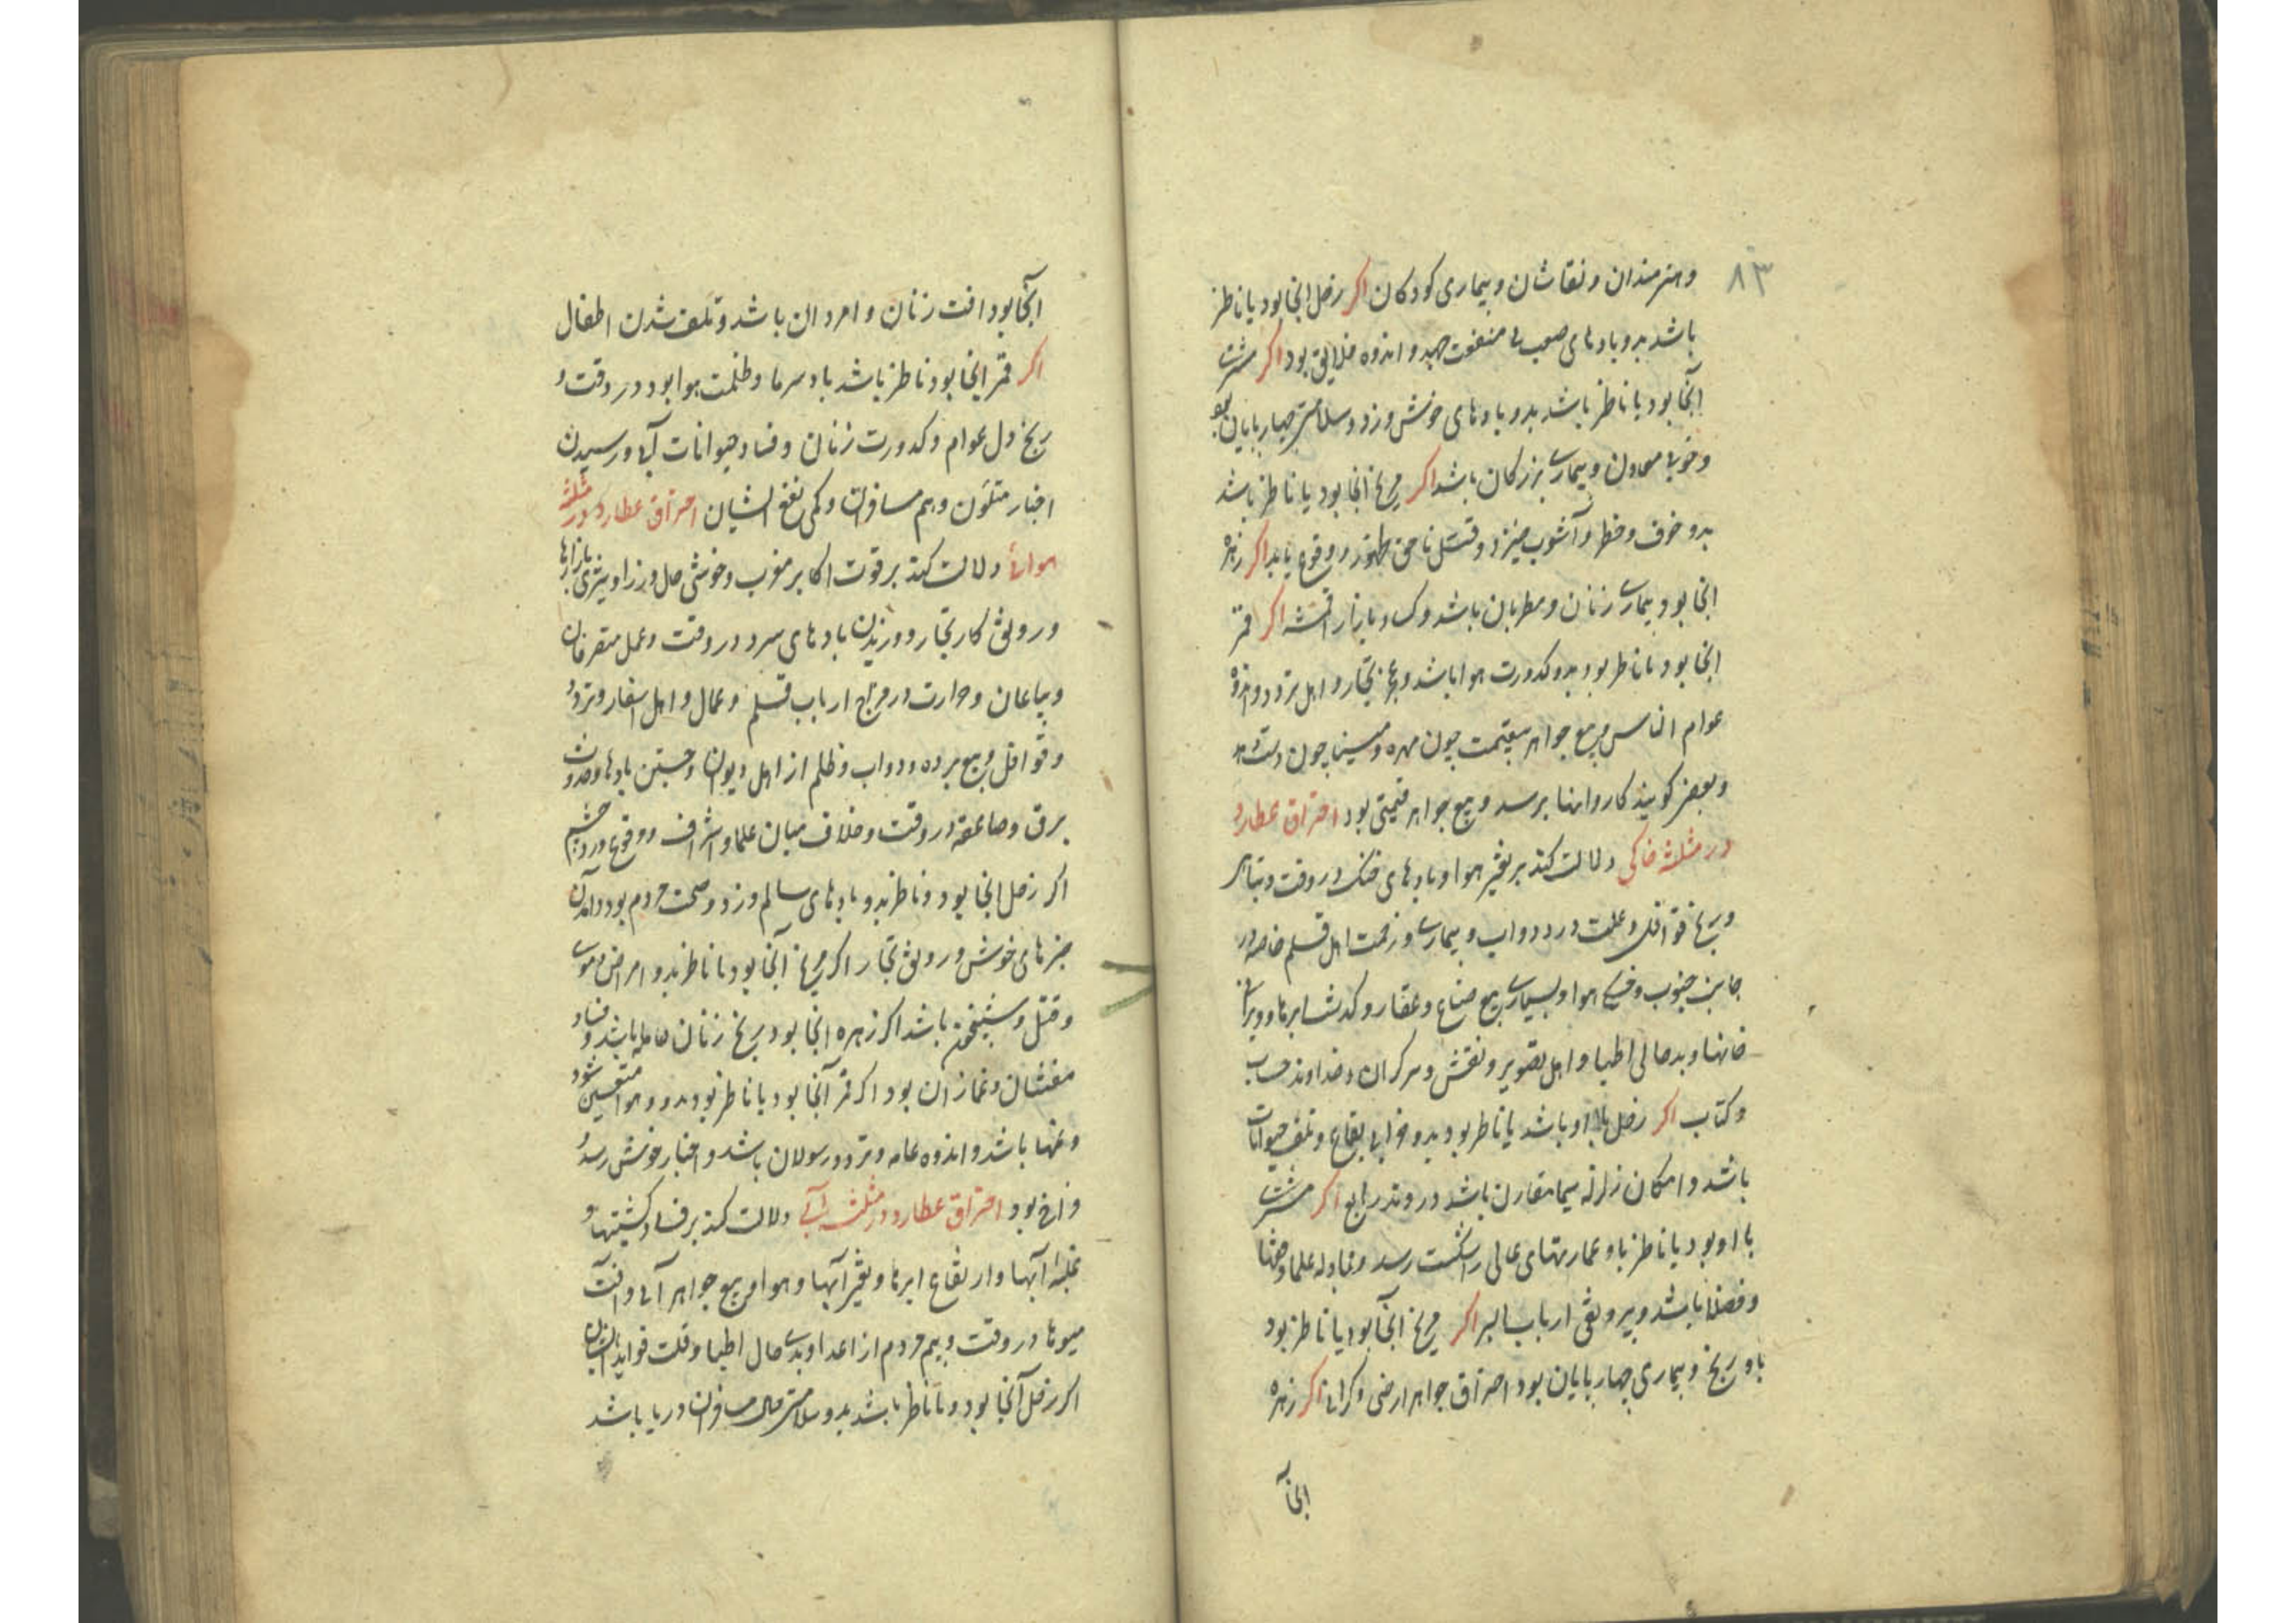 ۸۳
وهنرمندان ونقاشان وبیماری کودکان اکر زحل انجا بود یا ناظر
باشد بدو بادهای صعب بی منفعت جهد و اندوه خلایق بود اکر مشتری
آنجا بود یا ناظر باشد بدو بادهای خوش وزد وسلامتی چهارپایان بود
وخوبی معادن وبیماری بزرکان باشد اکر مریخ انجا بود یا ناظر باشد
بدو خوف وخطر وآشوب خیزد وقتل ناحق بظهور ووقوع یابد اکر زهره
انجا بود بیماری زنان ومطربان باشد وکساد بازار اقمشه اکر قمر
انجا بود یا ناظر بود بدو کدورت هوا باشد وهرج تجار واهل تردد واندوه
عوام الناس وبیع جواهر بیقیمت چون مهره ومینا چون
وبعضی کویند کاروانها برسد وبیع جواهر قیمتی بود احتراق عطارد
در مثلثه خاکی دلالت کند بر تغیر هوا وبادهای خنک در وقت وتباهی
ورنج قوافل وعلت در دواب وبیماری وزحمت اهل قلم خاصه در
جانب جنوب وخنکی هوا وبسیاری بیع ضیاع وعقار وکدشت ابرها وویرانی
خانها وبدحالی اطبا واهل تصویر ونقش ومسکران وخداوند حساب
وکتاب اکر زحل با او باشد یا ناظر بود بدو خرابی بقاع وتلف حیوانات
باشد وامکان زلزله سیما مقارن باشد در وتد رابع اکر مشتری
با او بود یا ناظر باو عمارتهای عالی را شکست رسد ومجادله علما وفقها
وفضلا باشد وبیرونقی ارباب البر اکر مریخ آنجا بود یا ناظر بود
باو رنج وبیماری چهارپایان بود احتراق جواهر ارضی وکرانی اکر زهره
انجا
آنجا بود افت زنان وامردان باشد وتلف شدن اطفال
اکر قمر انجا بود ناظر باشد باد سرما وظلمت هوا بود در وقت و
رنج دل عوام وکدورت زنان وفساد حیوانات آبی ورسیدن
اخبار متلون وهم مسافرات وکمی نفع ایشان احتراق عطارد در مثلثه
هوائی دلالت کند بر قوت اکابر مغرب وخوشی حال وزرا وتیزی بازارها
ورونق کار تجار ووزیدن بادهای سرد در وقت وعمل متصرفان
وبیاعان وحرارت در مزاج ارباب قلم وعمال واهل اسفار وتردد
وقوافل وبیع برده ودواب وظلم از اهل دیوان وجستن بادها وحدوث
برق وصاعقه در وقت وخلاف میان علما واشراف ووقوع درد چشم
اکر زحل انجا بود وناظر بدو بادهای سالم وزد وصحت مردم بود وآمدن
خبرهای خوش ورونق تجار اکر مریخ آنجا بود یا ناظر بدو امراض دموی
وقتل وشبیخون باشد اکر زهره انجا بود رنج زنان حامله باشد وفساد
مفتشان وغمازان بود اکر قمر آنجا بود یا ناظر بود بدو وهوا متعین شود
وغمها باشد واندوه عامه وتردد رسولان باشد واخبار خوش رسد
وارخ بود احتراق عطارد در مثلثه آبی دلالت کند بر فساد کشتیها و
غلبه آبها وارتفاع ابرها وتغیر آبها وهوا وبیع جواهر آبی وآفت
میوها در وقت وبیم مردم از اعدا وبدی حال اطبا وقلت فواید ایشان
اکر زحل آنجا بود ویا ناظر باشد بدو سلامتی حال مسافران دریا باشد